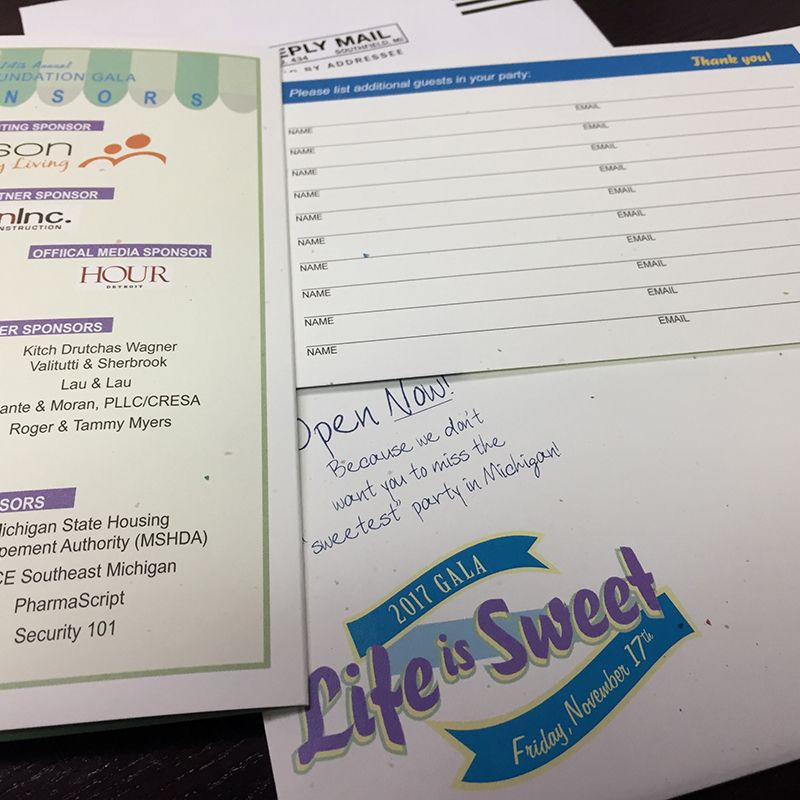 14th Annual
FOUNDATION GALA
NSORS
TING SPONSOR
SON
Living
TNER SPONSOR
nInc.
NSTRUCTION
OFFIICAL MEDIA SPONSOR
HOUR
DETROIT
ER SPONSORS
Kitch Drutchas Wagner
Valitutti & Sherbrook
Lau & Lau
ante & Moran, PLLC/CRESA
Roger & Tammy Myers
SORS
Michigan State Housing
pement Authority (MSHDA)
CE Southeast Michigan
PharmaScript
Security 101
EPLY MAIL
434 SOUTHFIELD, MI
BY ADDRESSEE
Please list additional guests in your party:
Thank you!
NAME EMAIL
NAME EMAIL
NAME EMAIL
NAME EMAIL
NAME EMAIL
NAME EMAIL
NAME EMAIL
NAME EMAIL
NAME EMAIL
NAME EMAIL
Open Now!
Because we don't
want you to miss the
"sweetest" party in Michigan!
2017 GALA
Life is Sweet
Friday, November 17th